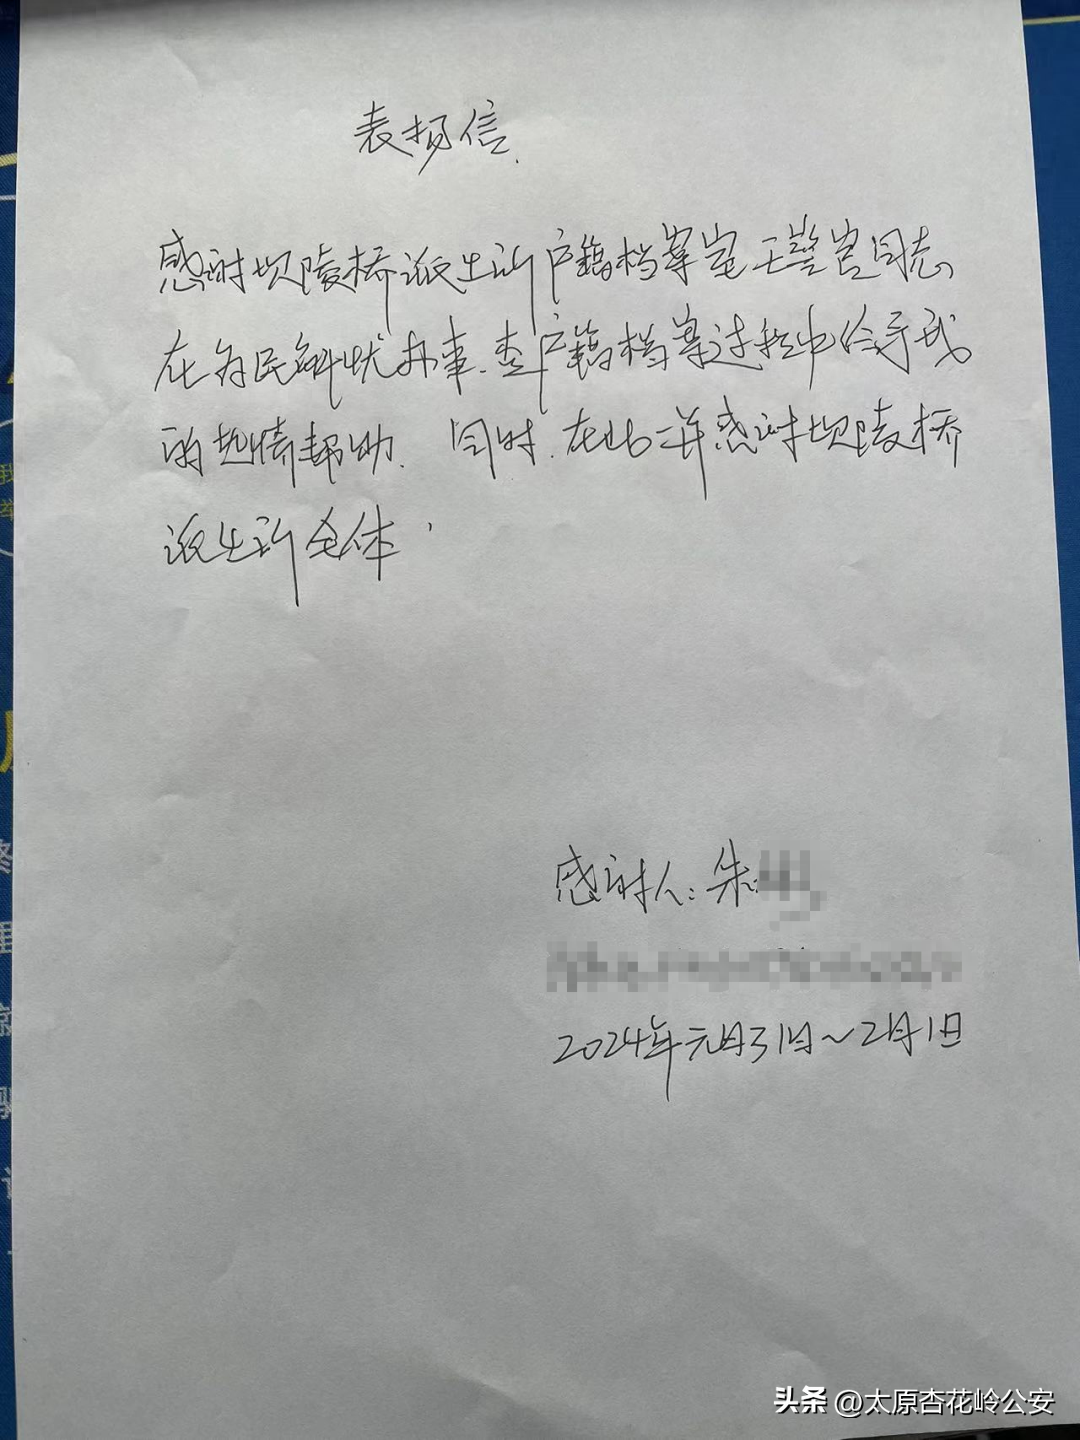 表扬信.
感谢坝陵桥派出所户籍档案室王警官同志
在为民解忧办事.查户籍档案过程中给予我
的热情帮助.同时.在此一并感谢坝陵桥
派出所全体.
感谢人:朱
2024年元月31日~2月1日
头条 @太原杏花岭公安